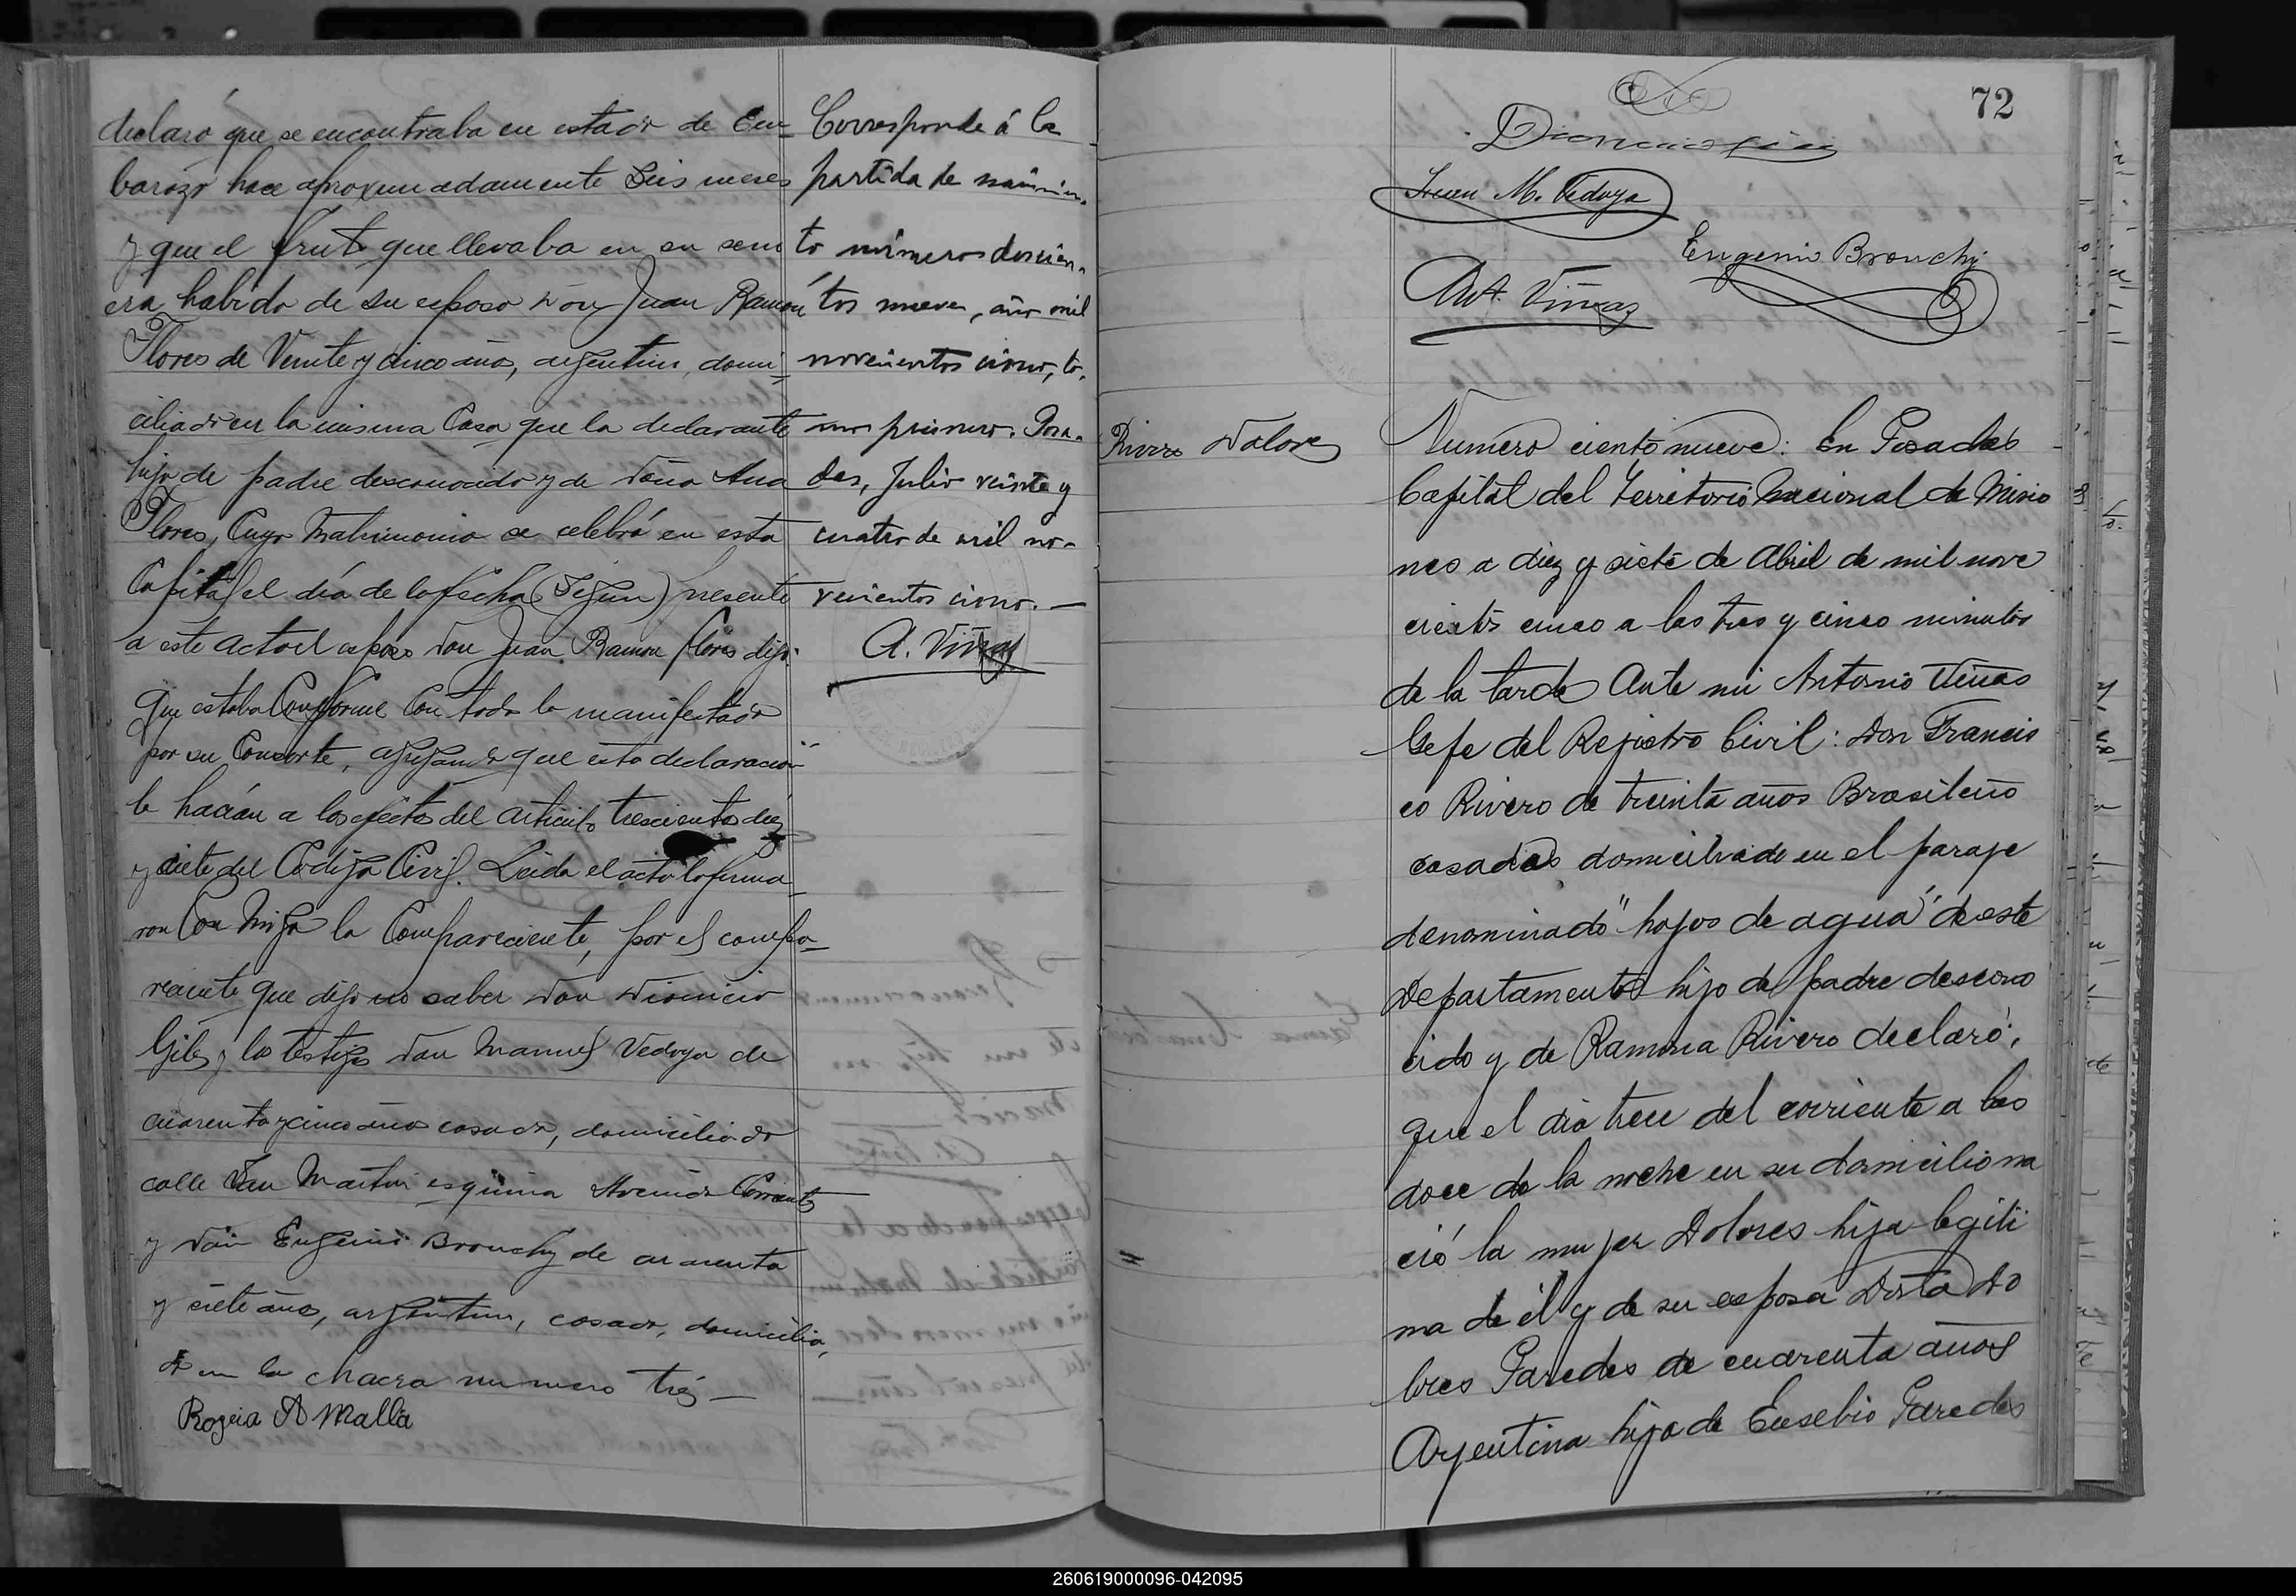 declaró que se encontraba en estado de Em-
barazo hace aproximadamente Seis meses
y que el fruto que llevaba en su seno
era habido de su esposo Don Juan Ramon
Flores de Veinte y cinco años, argentino, domi-
ciliado en la misma Casa que la declarante
hijo de padre desconocido y de Doña Ana
Flores, Cuyo Matrimonio se celebró en esta
Capital el día de la fecha (Segun) presente
a este acto el esposo Don Juan Ramon Flores dijo:
Que estaba Conforme Con todo lo manifestado
por su Consorte, agregando que esta declaración
la hacían a los efectos del articulo trescientos diez
y siete del Código Civil. Leida el acta la firma-
ron Con Migo la Compareciente, por el compa-
reciente que dijo no saber Don Dionicio
Gils y los testigos Don Manuel Vedoya de
cuarenta y cinco años casado, domiciliado
calle San Martin esquina Avenida Corrientes
y Don Eugenio Bronchy de cuarenta
y siete años, argentino, casado, domicilia,
do en la chacra numero tres —
Rogeia A Malla
Corresponde á la
partida de nacimien.
to número doscien-
tos nueve, año mil
novecientos cinco, to.
mo primero. Posa-
das, Julio veinte y
cuatro de mil no-
vecientos cinco. —
A. Viñas
72
Juan M. Vedoya
Eugenio Bronchy
Ant. Viñas
Rivero Dolores
Numero ciento nueve: En Posadas
Capital del Territorio Nacional de Misio
nes a diez y siete de Abril de mil nove
cientos cinco a las tres y cinco minutos
de la tarde Ante mi Antonio Viñas
Gefe del Rejistro Civil: Don Francis
co Rivero de treinta años Brasileño
casado domiciliado en el paraje
denominado "hojos de agua" de este
Departamento hijo de padre descono
cido y de Ramona Rivero declaró:
que el dia trece del corriente a las
doce de la noche en su domicilio na
ció la mujer Dolores hija legiti
ma de él y de su esposa Doña Do
lores Paredes de cuarenta años
Argentina hija de Eusebio Paredes
260619000096-042095